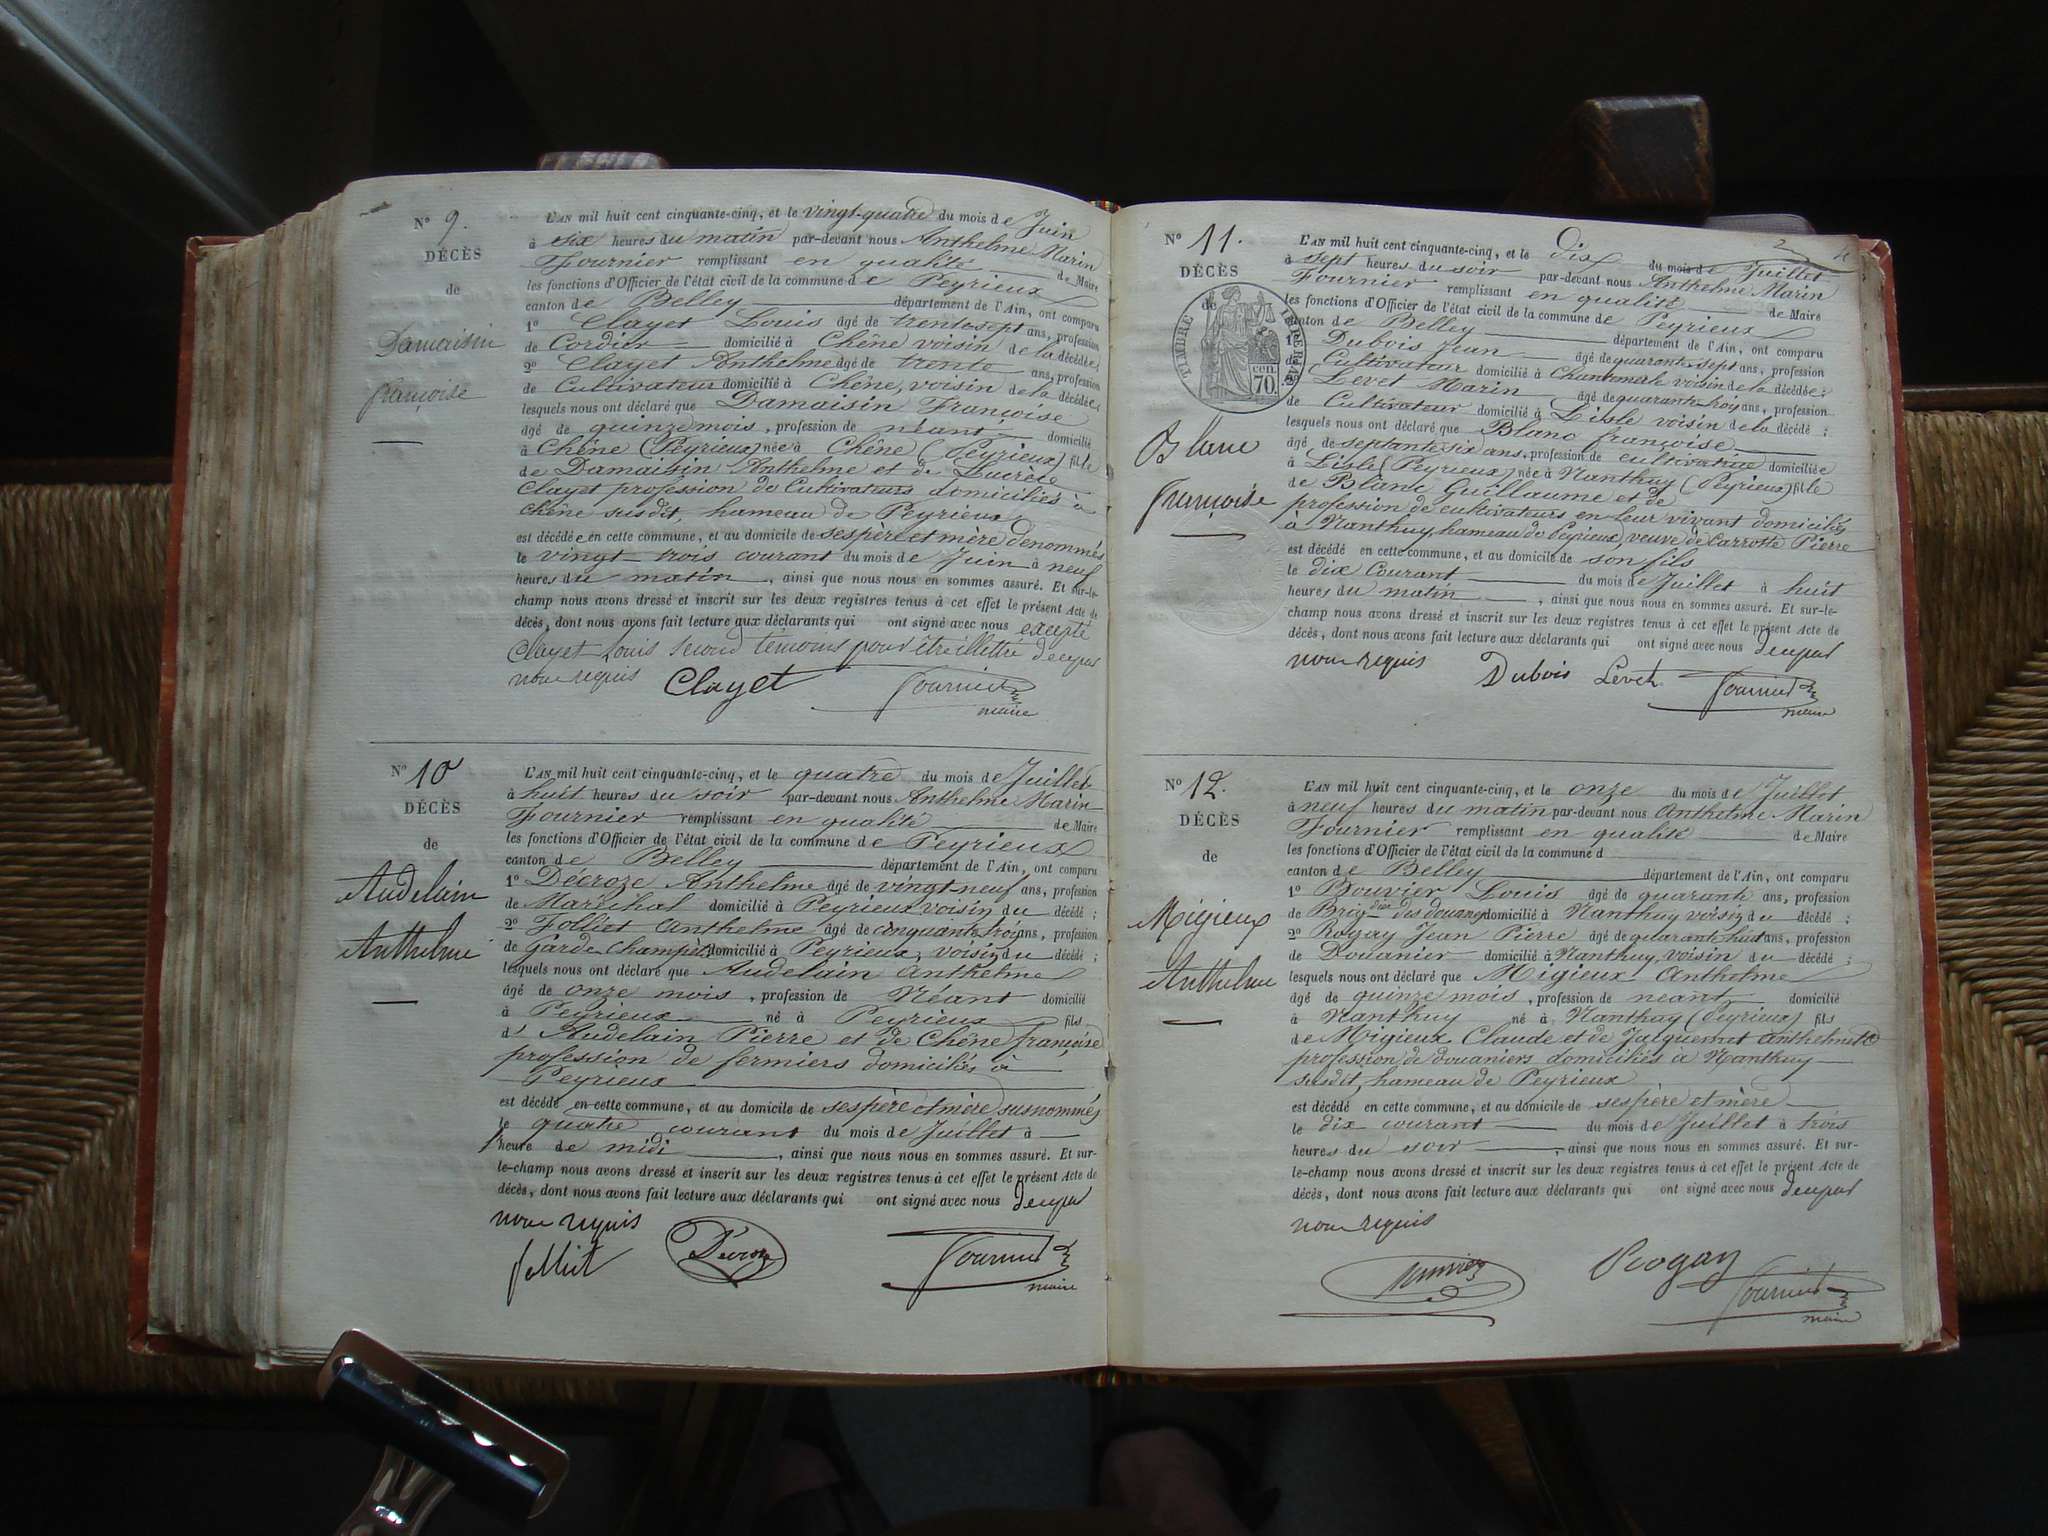 N° 9.
DÉCÈS
de
Damaisin
françoise
L'AN mil huit cent cinquante-cinq, et le vingt-quatre du mois de Juin
à six heures du matin par-devant nous Anthelme Marin
Fournier remplissant en qualité de Maire
les fonctions d'Officier de l'état civil de la commune de Peyrieux
canton de Belley département de l'Ain, ont comparu
1° Clayet Louis âgé de trente sept ans, profession
de Cordier domicilié à Chêne voisin de la décédée;
2° Clayet Anthelme âgé de trente ans, profession
de Cultivateur domicilié à Chêne, voisin de la décédée;
lesquels nous ont déclaré que Damaisin Françoise
âgé de quinze mois, profession de néant domicilié
à Chêne (Peyrieux) née à Chêne (Peyrieux) fille
de Damaisin Anthelme et de Lucrèce
Clayet profession de Cultivateurs domiciliés à
Chêne susdit, hameau de Peyrieux
est décédée en cette commune, et au domicile de ses père et mère dénommés
le vingt trois courant du mois de Juin à neuf
heures du matin, ainsi que nous nous en sommes assuré. Et sur-le-
champ nous avons dressé et inscrit sur les deux registres tenus à cet effet le présent Acte de
décès, dont nous avons fait lecture aux déclarants qui ont signé avec nous excepté
Clayet Louis second témoins pour être illettré de ce par
nous requis Clayet Fournier
maire
N° 10
DÉCÈS
de
Audelain
Anthelme
L'AN mil huit cent cinquante-cinq, et le quatre du mois de Juillet
à huit heures du soir par-devant nous Anthelme Marin
Fournier remplissant en qualité de Maire
les fonctions d'Officier de l'état civil de la commune de Peyrieux
canton de Belley département de l'Ain, ont comparu
1° Décroze Anthelme âgé de vingt-neuf ans, profession
de Maréchal domicilié à Peyrieux voisin du décédé;
2° Folliet Anthelme âgé de cinquante trois ans, profession
de garde champêtre domicilié à Peyrieux, voisin du décédé;
lesquels nous ont déclaré que Audelain Anthelme
âgé de onze mois, profession de Néant domicilié
à Peyrieux né à Peyrieux fils
d'Audelain Pierre et de Chêne françoise
profession de fermiers domiciliés à
Peyrieux
est décédé en cette commune, et au domicile de ses père et mère susnommés
le quatre courant du mois de Juillet à
heure de midi, ainsi que nous nous en sommes assuré. Et sur-
le-champ nous avons dressé et inscrit sur les deux registres tenus à cet effet le présent Acte de
décès, dont nous avons fait lecture aux déclarants qui ont signé avec nous de ce par
nous requis
folliet Décroze Fournier
maire
N° 11.
DÉCÈS
de
TIMBRE IMPERIAL
70 cen.
Blanc
françoise
L'AN mil huit cent cinquante-cinq, et le Dix du mois de Juillet
à sept heures du soir par-devant nous Anthelme Marin
Fournier remplissant en qualité de Maire
les fonctions d'Officier de l'état civil de la commune de Peyrieux
canton de Belley département de l'Ain, ont comparu
1° Dubois Jean âgé de quarante-sept ans, profession
de Cultivateur domicilié à Chantemerle voisin de la décédée;
2° Levet Marin âgé de quarante-trois ans, profession
de Cultivateur domicilié à Lisle voisin de la décédé;
lesquels nous ont déclaré que Blanc françoise
âgé de septante-six ans, profession de cultivatrice domiciliée
à Lisle (Peyrieux) née à Nanthuy (Peyrieux) fille
de Blanc Guillaume et de
profession de cultivateurs en leur vivant domiciliés
à Nanthuy, hameau de Peyrieux, veuve de Carrotte Pierre
est décédé en cette commune, et au domicile de son fils
le dix courant du mois de Juillet à huit
heures du matin, ainsi que nous nous en sommes assuré. Et sur-le-
champ nous avons dressé et inscrit sur les deux registres tenus à cet effet le présent Acte de
décès, dont nous avons fait lecture aux déclarants qui ont signé avec nous de ce par
nous requis Dubois Levet Fournier
maire
N° 12.
DÉCÈS
de
Migieux
Anthelme
L'AN mil huit cent cinquante-cinq, et le onze du mois de Juillet
à neuf heures du matin par-devant nous Anthelme Marin
Fournier remplissant en qualité de Maire
les fonctions d'Officier de l'état civil de la commune d
canton de Belley département de l'Ain, ont comparu
1° Bouvier Louis âgé de quarante ans, profession
de Brig dier des douanes domicilié à Nanthuy voisin du décédé;
2° Rogay Jean Pierre âgé de quarante huit ans, profession
de Douanier domicilié à Nanthuy, voisin du décédé;
lesquels nous ont déclaré que Migieux Anthelme
âgé de quinze mois, profession de néant domicilié
à Nanthuy né à Nanthuy (Peyrieux) fils
de Migieux Claude et de Julquemet Anthelmette
profession de douaniers domiciliés à Nanthuy
susdit, hameau de Peyrieux
est décédé en cette commune, et au domicile de ses père et mère
le dix courant du mois de Juillet à trois
heures du soir, ainsi que nous nous en sommes assuré. Et sur-
le-champ nous avons dressé et inscrit sur les deux registres tenus à cet effet le présent Acte de
décès, dont nous avons fait lecture aux déclarants qui ont signé avec nous de ce par
nous requis
Rogay Fournier
maire